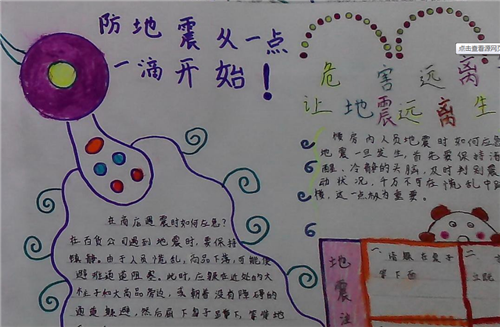 防地震从一点
一滴开始！
危害远离
让地震远离生
点击查看源网页
楼房内人员地震时如何应急？
地震一旦发生，首先要保持清
醒、冷静的头脑，及时判别震
动状况，千万不可在慌乱中
楼，这一点极为重要。
在商店遇震时如何应急？
在百货公司遇到地震时，要保持
镇静。由于人员慌乱，商品下落，可能使
避难通道阻塞。此时，应躲在近处的大
柱子和大商品旁边，或朝着没有障碍的
通道躲避，然后屈下身子蹲下，等待地
地震注
一、
桌子
下面
二、